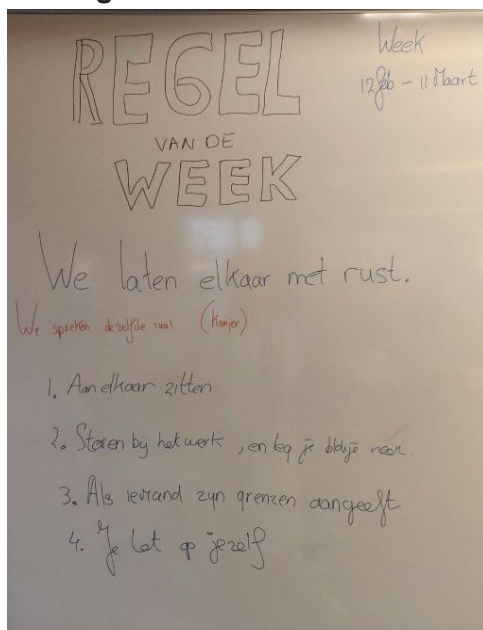 REGEL
VAN DE
WEEK
Week
12 feb - 11 Maart
We laten elkaar met rust.
We spreken dezelfde taal (Kanjer)
1. Aan elkaar zitten
2. Storen bij het werk, en leg je blokje neer.
3. Als iemand zijn grenzen aangeeft
4. Je let op jezelf